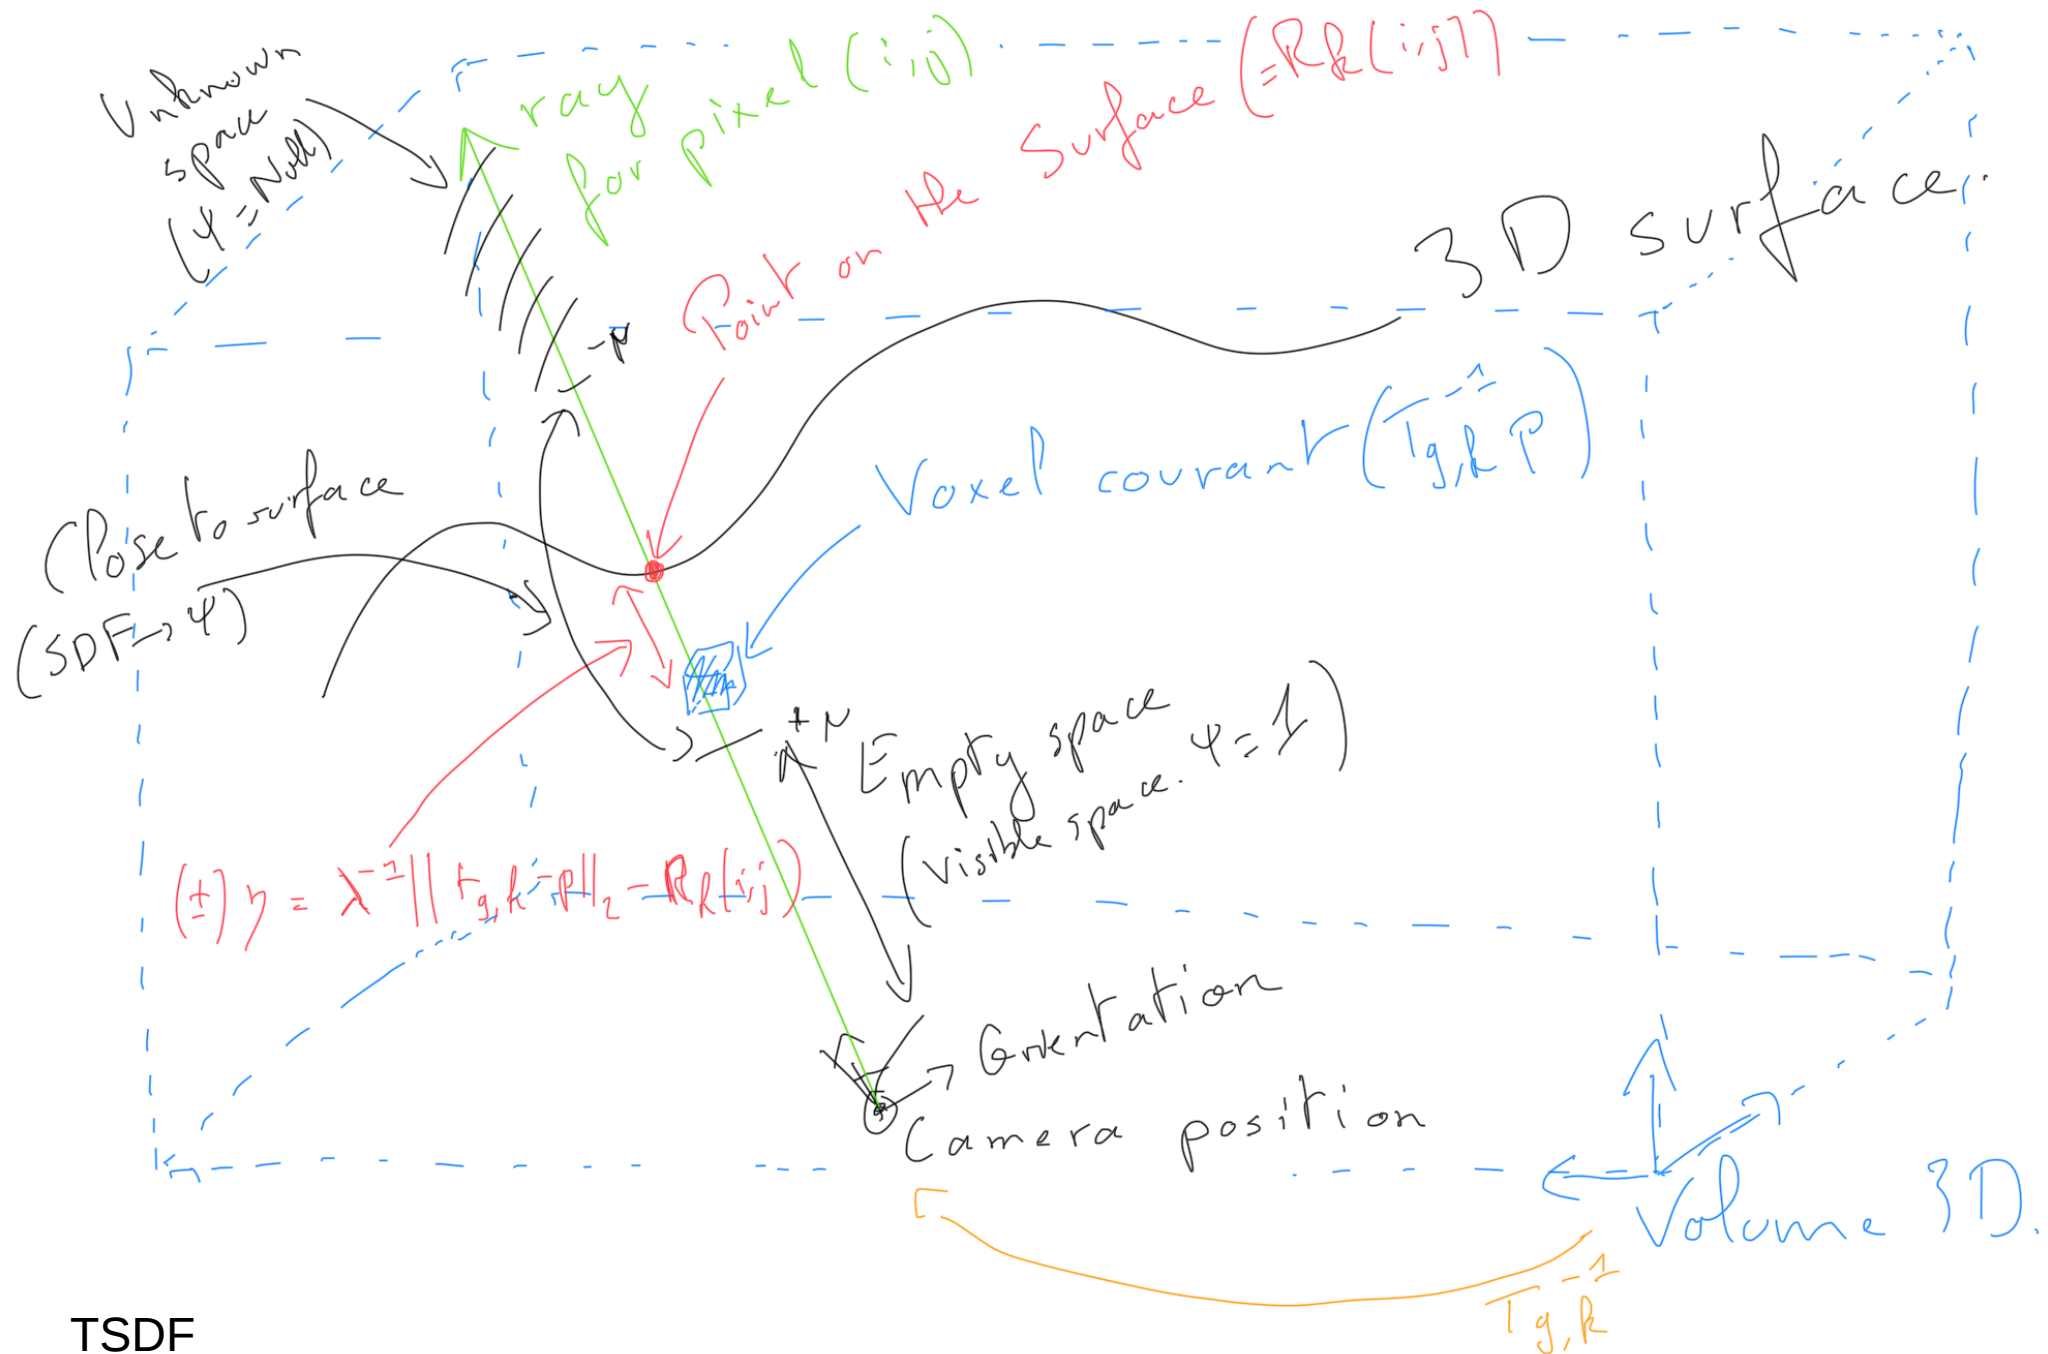 Unknown
space
(Ψ = Null)
ray
for pixel (i,j)
Point on the Surface (=Rk(i,j))
3D surface
-μ
Voxel courant (Tg,k⁻¹ P)
Close to surface
(SDF → Ψ)
+μ
Empty space
(visible space. Ψ = 1)
(±) η = λ⁻¹ || tg,k - p||₂ - Rk(i,j)
Orientation
Camera position
Volume 3D.
Tg,k⁻¹
TSDF